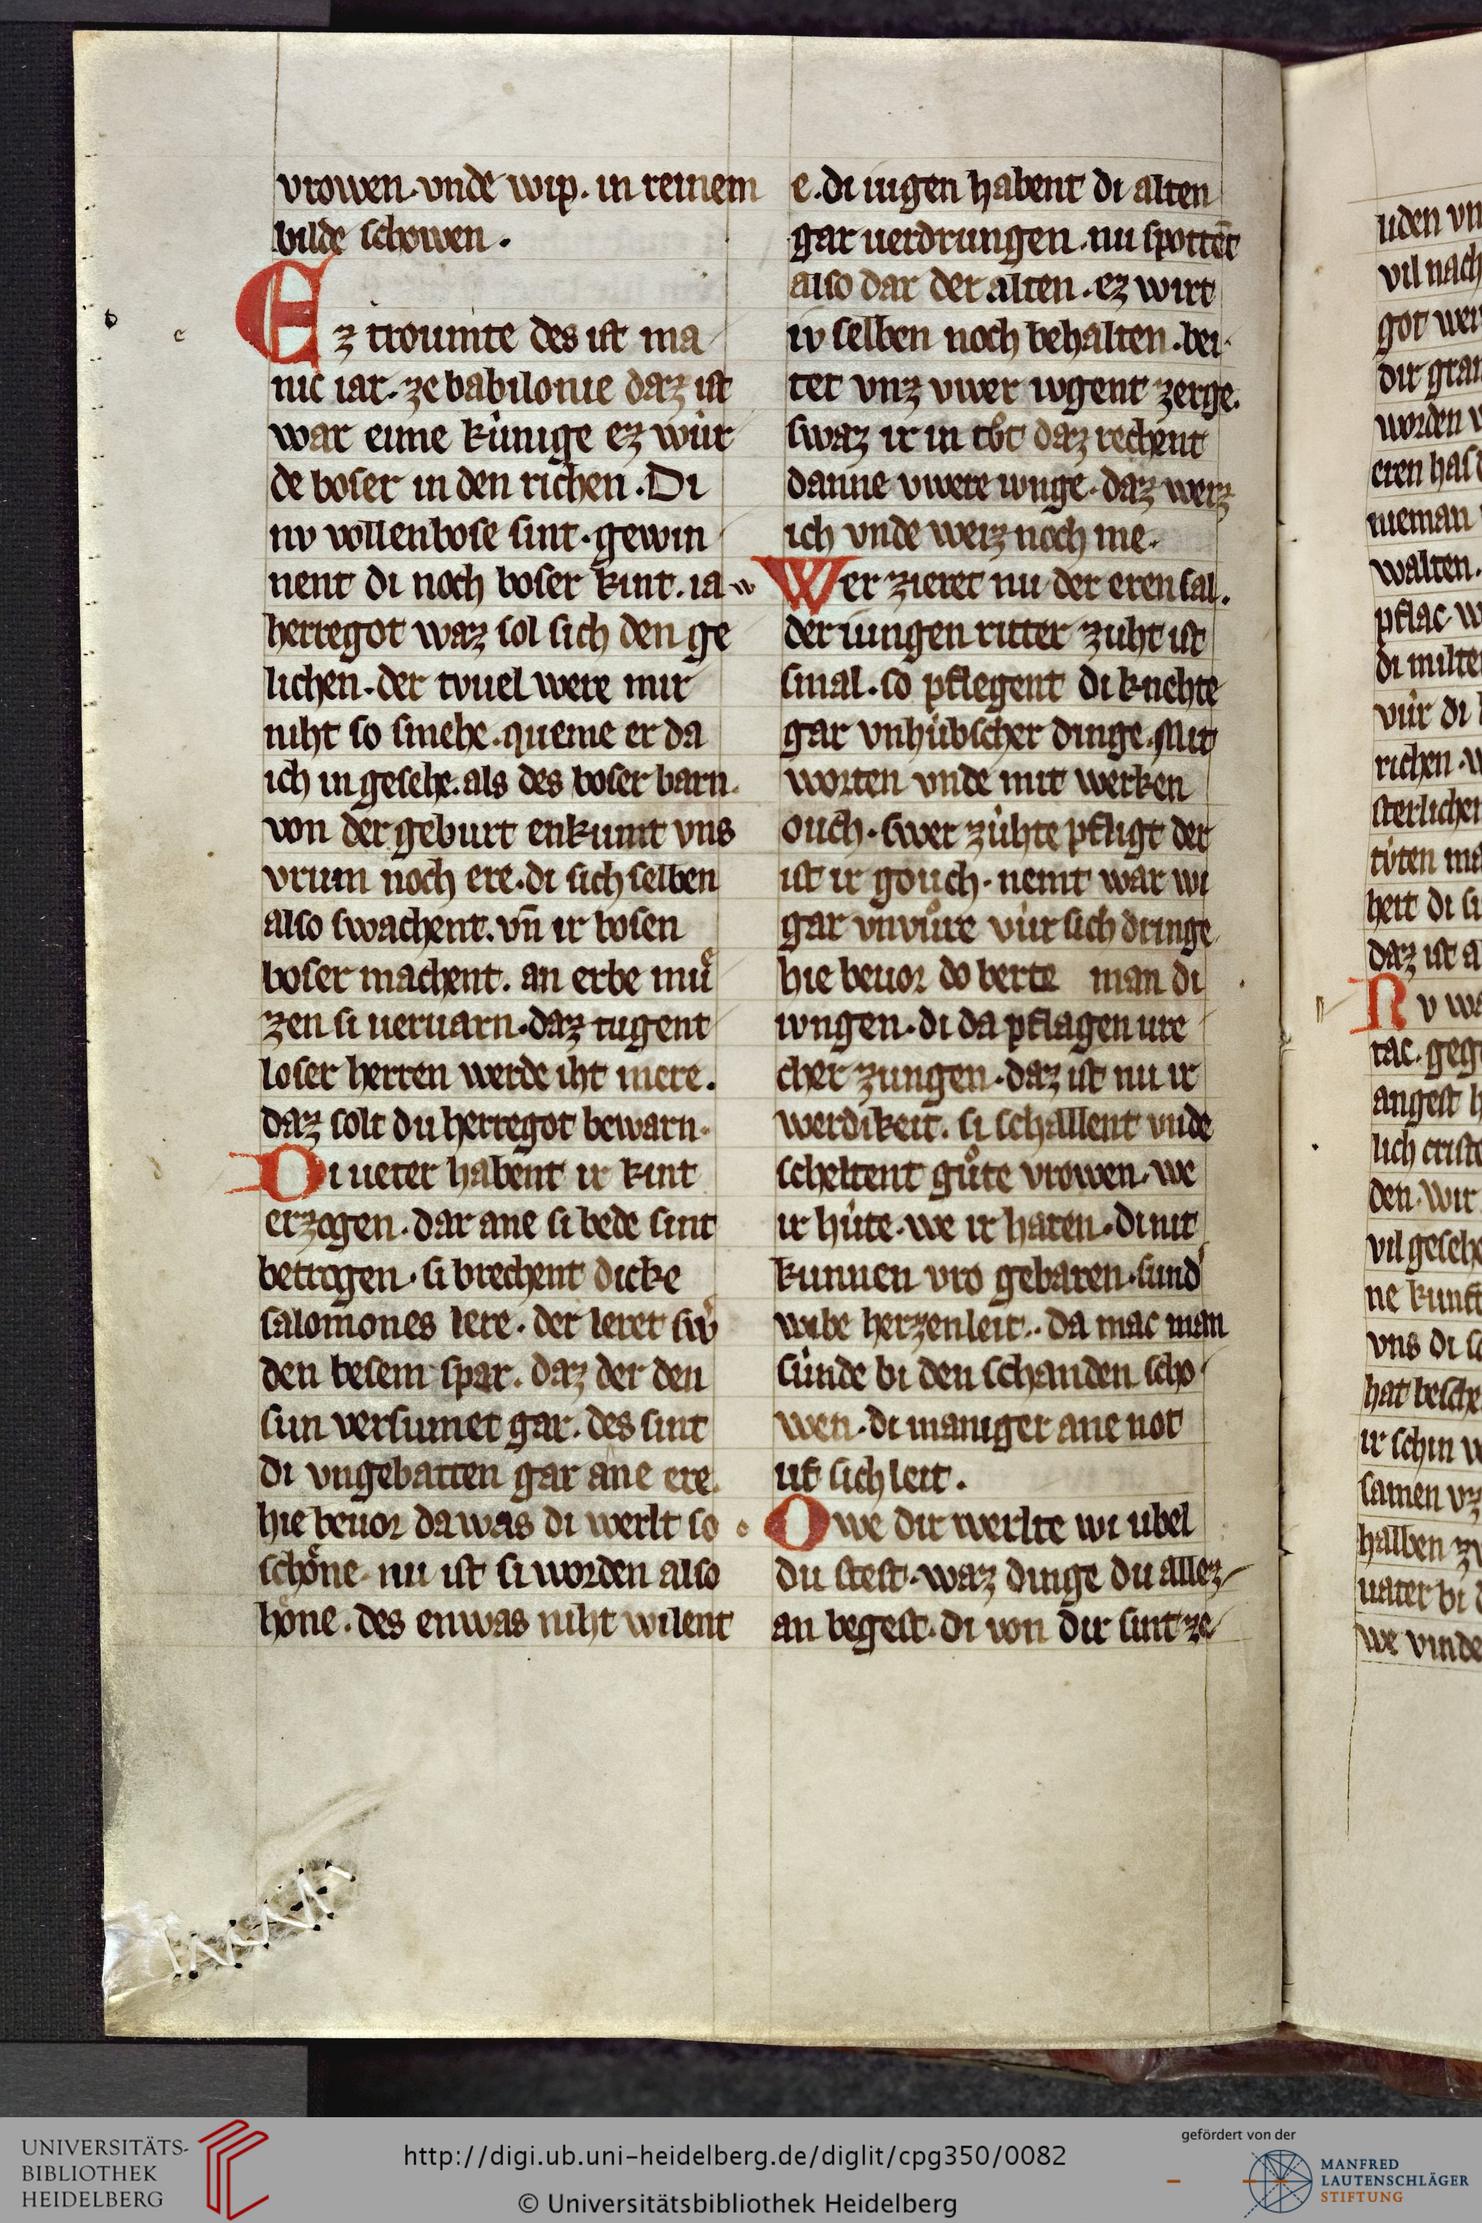 vrowen. vnde wip. in reinem
bilde schowen.
Ez troumte des ist ma
nic iar. ze babilonie daz ist
war eime kúnige ez wúr
de boser in den richen. Di
nv vollenbose sint. gewin
nent di noch boser kint. ia
herregot waz sol sich den ge
lichen. der tvuel were mir
niht so smehe. queme er da
ich in gesehe. als des boser barn.
von der geburt enkumt vns
vrum noch ere. di sich selben
also swachent. vn̄ ir bosen
boser machent. an erbe muͤ
zen si ueruarn. daz tugent
loser herren werde iht mere.
daz solt du herregot bewarn.
Di ueter habent ir kint
erzogen. dar ane si bede sint
betrogen. si brechent dicke
salomones lere. der leret sw'
den besem spar. daz der den
sun versumet gar. des sint
di vngebatten gar ane ere.
hie beuor da was di werlt so
schoͤne. nu ist si worden also
hoͤne. des enwas niht wilent
e. di iugen habent di alten
gar uerdrungen. nu spottēt
also dar der alten. ez wirt
iv selben noch behalten. bei
tet vnz vwer iugent zerge.
swaz ir in tvͦt daz rechent
danne vwere iunge. daz weiz
ich vnde weiz noch me.
w Wer zieret nu der eren sal.
der iungen ritter zuht ist
smal. so pflegent di knehte
gar vnhúbscher dinge. Mit
worten vnde mit werken
ouch. swer zúhte pfligt der
ist ir gouch. nemt war wi
gar vnvuͦre vúr sich dringe
hie beuor do berte man di
iungen. di da pflagen ure
cher zungen. daz ist nu ir
werdikeit. si schallent vnde
scheltent guͦte vrowen. we
ir húte. we ir haren. di nit
kunnen vro gebaren. sund'
wibe herzenleit. da mac man
súnde bi den schanden scho
wen. di maniger ane not
uf sich leit.
o Owe dir werlte wi ubel
du stest. waz dinge du allez
an begest. di von dir sint ze
UNIVERSITÄTS-
BIBLIOTHEK
HEIDELBERG
http://digi.ub.uni-heidelberg.de/diglit/cpg350/0082
© Universitätsbibliothek Heidelberg
gefördert von der
MANFRED
LAUTENSCHLÄGER
STIFTUNG